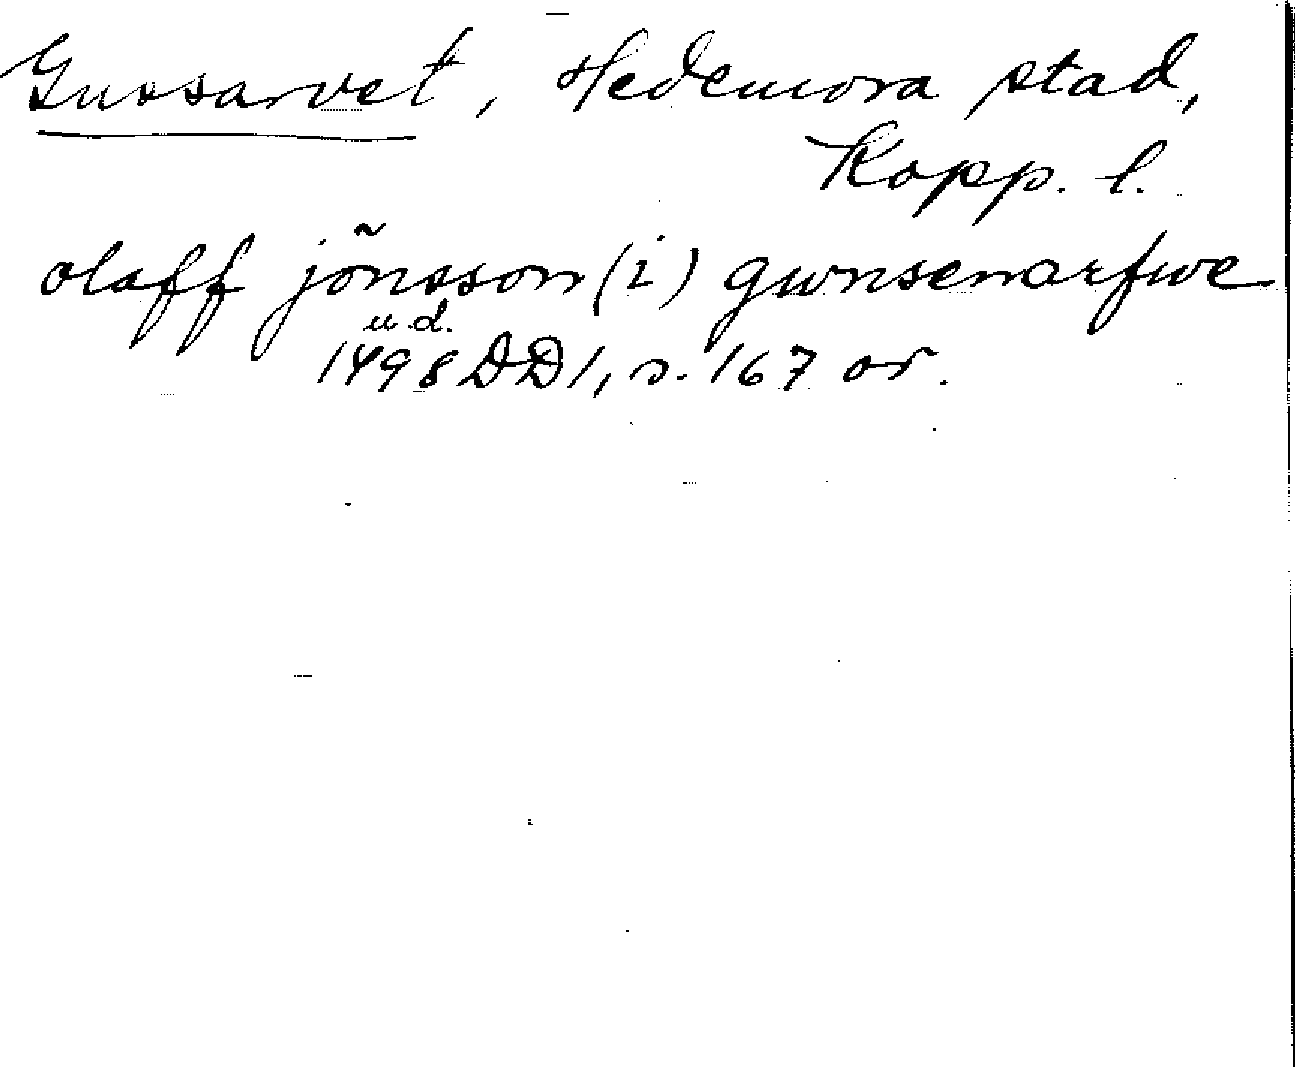 Gussarvet, Hedemora stad,
Kopp. l.
olaff jõnsson (i) gwnsenarfwe
u.d.
1498 DD 1, s. 167 or.